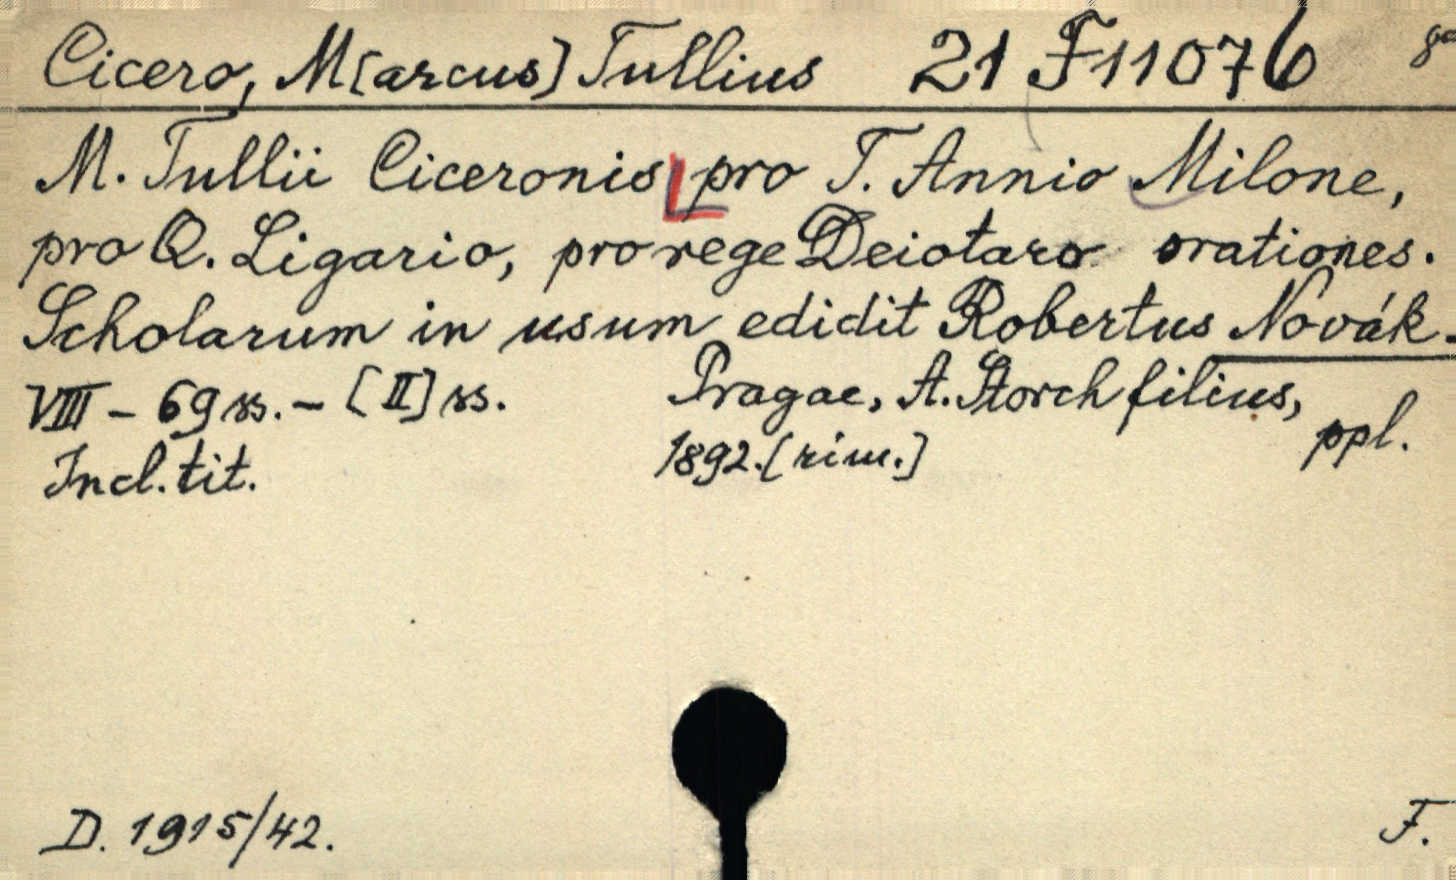 Cicero, M[arcus] Tullius 21 F 11076
M. Tullii Ciceronis pro T. Annio Milone,
pro Q. Ligario, pro rege Deiotaro orationes.
Scholarum in usum edidit Robertus Novák.
VIII - 69 ss. - [II] ss. Pragae, A. Storch filius, ppl.
Incl. tit. 1892. [rim.]
D. 1915/42. F.